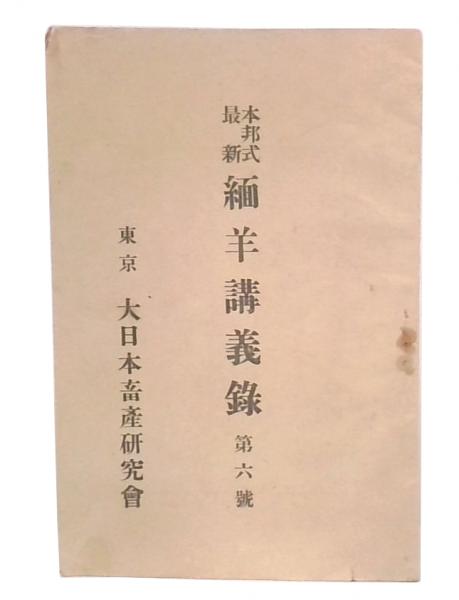 本邦式
最新
緬羊講義錄 第六號
東京 大日本畜產研究會